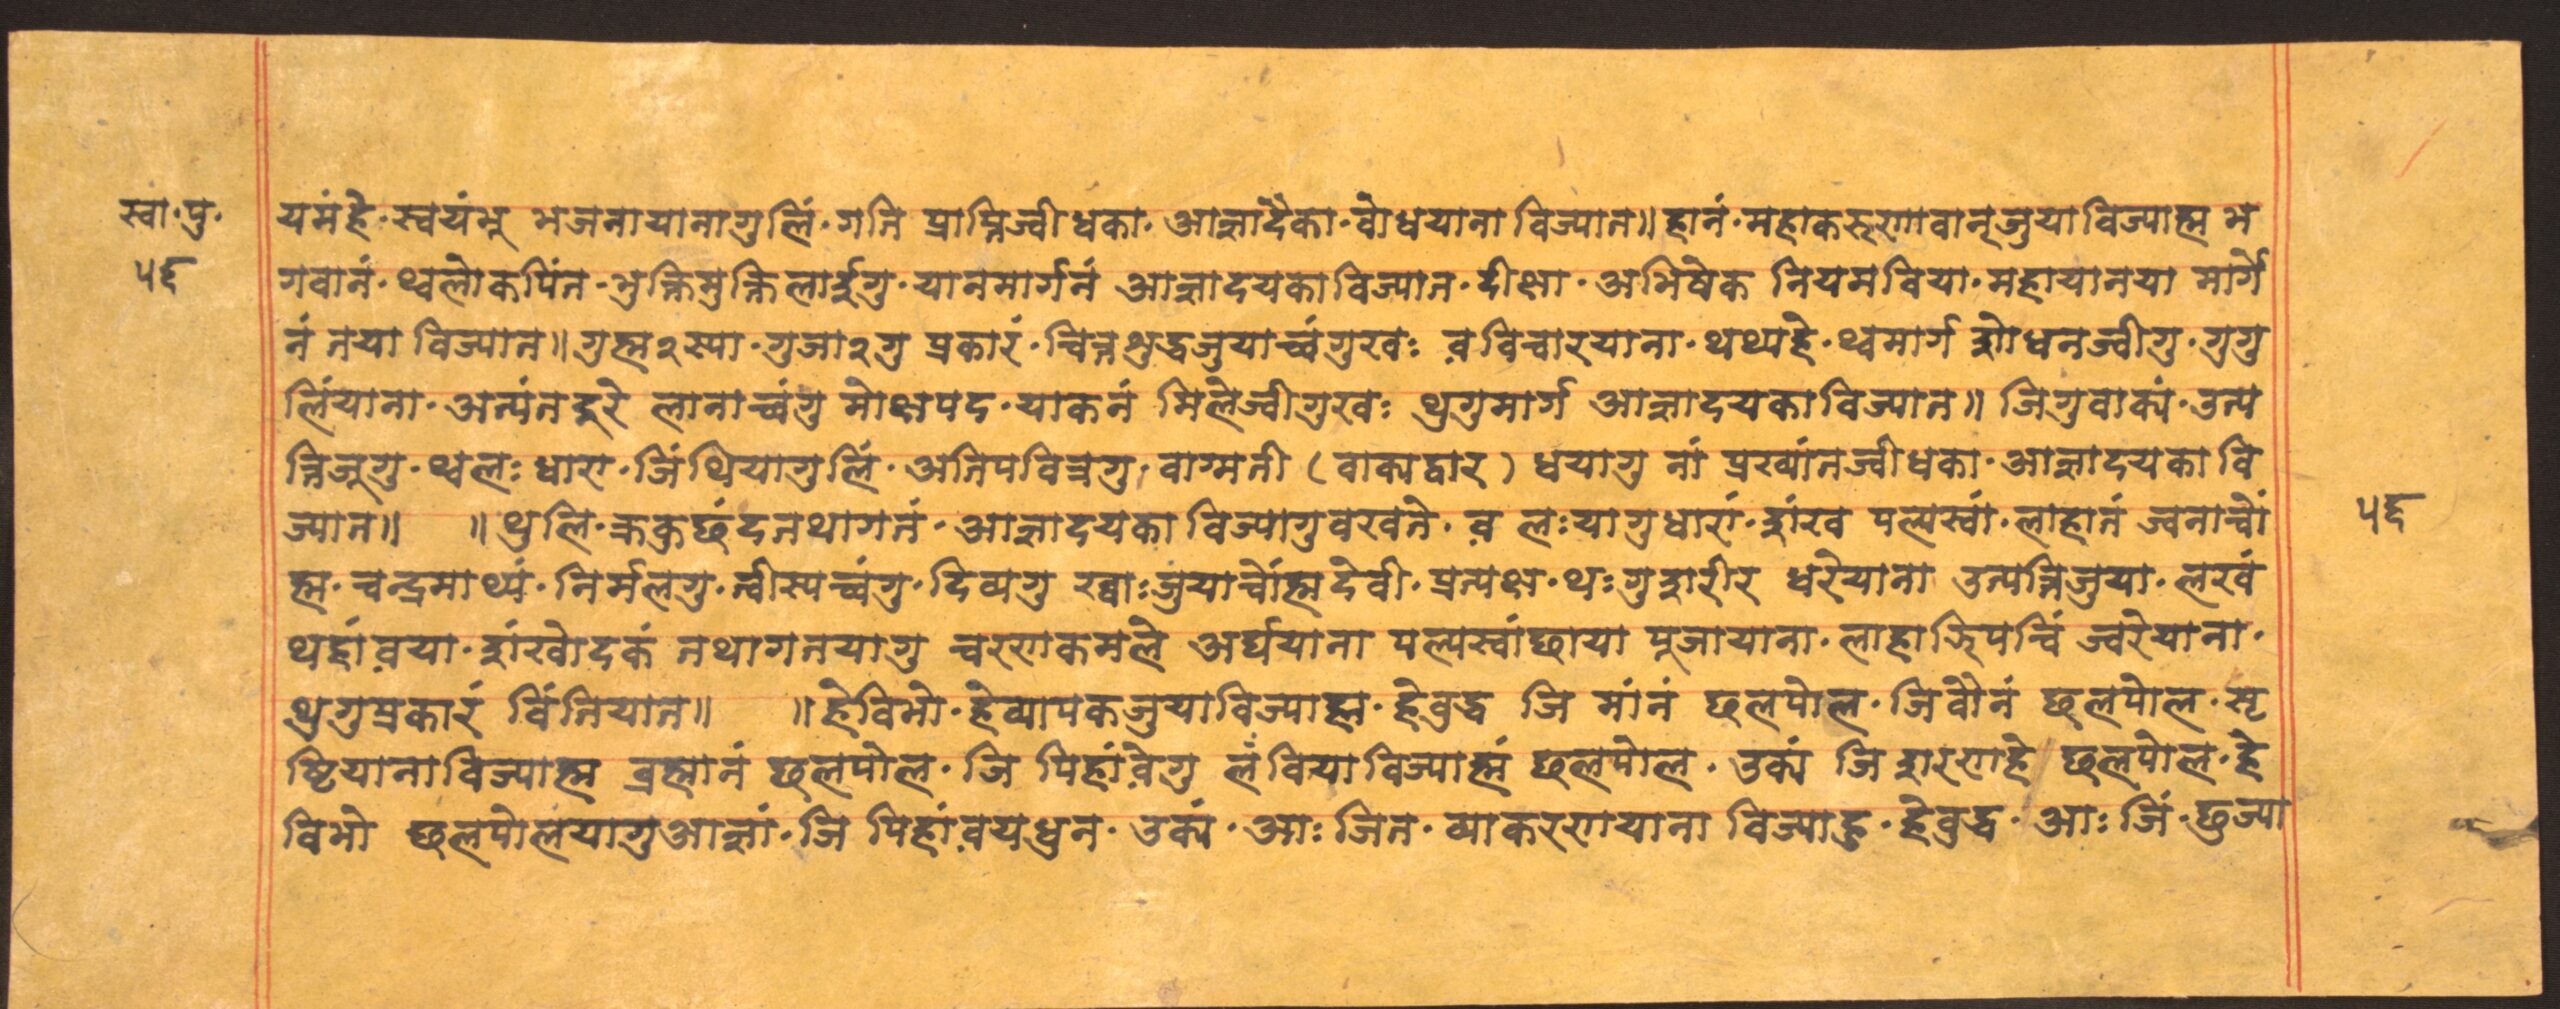 स्वा·पु·
५६
यमंहे·स्वयंभू भजनायानागुलिं·गति प्राप्तिज्वीधका·आज्ञादैका·बोधयाना विज्यात॥ हानं·महाकरुणावान्जुयाविज्याह्म भ
गवानं·थ्वलोकपिंत·भुक्तिमुक्ति लाईगु·यानमार्गनं आज्ञादयकाविज्यात·दीक्षा·अभिषेक नियमविया·महायानया मार्गे
नं तया विज्यात॥ गुह्म२स्या·गुजा२गु प्रकारं·चित्तशुद्धजुयाच्वंगुखः व़विचारयाना·थथ्यहे·थ्वमार्ग शोधनज्वीगु·गुगु
लिंयाना·अत्यंतदुरे लानाच्वंगु मोक्षपद·याकनं मिलेज्वीगुखः थुगुमार्ग आज्ञादयकाविज्यात॥ जिगुवाक्यं·उत्प
त्तिजूगु·थ्वलः धारा·जिंथियागुलिं·अतिपवित्रगु, वाग्मती (वाक्यद्वार) धयागु नां प्रख्यांतज्वीधका·आज्ञादयका वि
ज्यात॥ ॥ थुलि·क्रकुछंदतथागतं·आज्ञादयका विज्यागुवखते·व़ लःयागुधारां·शंख पल्यस्वां·लाहातं ज्वनाच्वों
ह्म·चन्द्रमाथ्यं·निर्मलगु·त्वीस्यच्वंगु·दिव्यगु ख्वाःजुयाच्वोंह्मदेवी·प्रत्यक्ष·थःगुशरीर धरेयाना उत्पत्तिजुया·लखं
थहाँव़या·शंखोदकं तथागतयागु चरणकमले अर्घयाना पल्यस्वांछाया पूजायाना·लाहाज़िपचिं ज्वरेयाना·
थुगुप्रकारं विंतियात॥ ॥ हेविभो·हेव्यापकजुयाविज्याह्म·हेबुद्ध जि मांनं छलपोल·जिबौनं छलपोल·सृ
ष्टियानाविज्याह्म ब्रह्मानं छलपोल·जि पिहांव़ेगु लँवियाविज्याह्मं छलपोल·उक्यं जि शरणहे छलपोल·हे
विभो छलपोलयागुआज्ञां·जि पिहांव़यधुन·उक्यं·आः जित·व्याकरणयाना विज्याहु·हेबुद्ध·आः जिं·छुज्या
५६